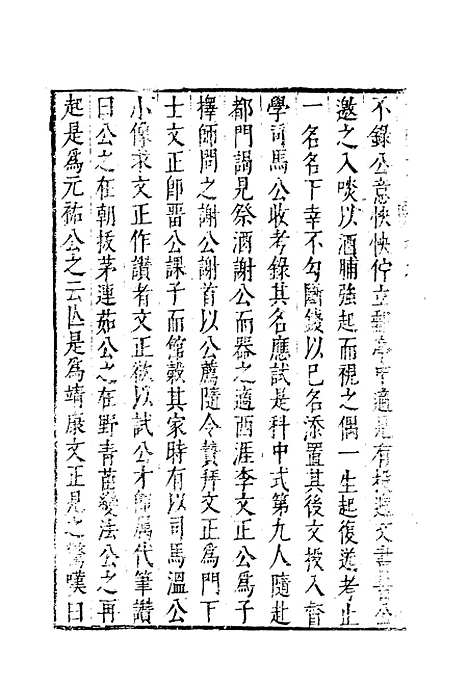 不錄公意怏怏佇立郵亭中適見有投遞文書公
邀之入啖以酒脯強起而視之偶一生起復道考止
一名名下幸不勾斷錢以已名添置其後文投入督
學司馬公收考錄其名應試是科中式第九人隨赴
都門謁見祭酒謝公而器之適西涯李文正公為子
擇師問之謝公謝首以公薦隨令贄拜文正為門下
士文正即晋公課子而館穀其家時有以司馬溫公
小像求文正作讃者文正欲以試公才即属代筆讃
曰公之在朝拔茅連茹公之在野青苗變法公之再
起是為元祐公之云亾是為靖康文正見之驚嘆曰